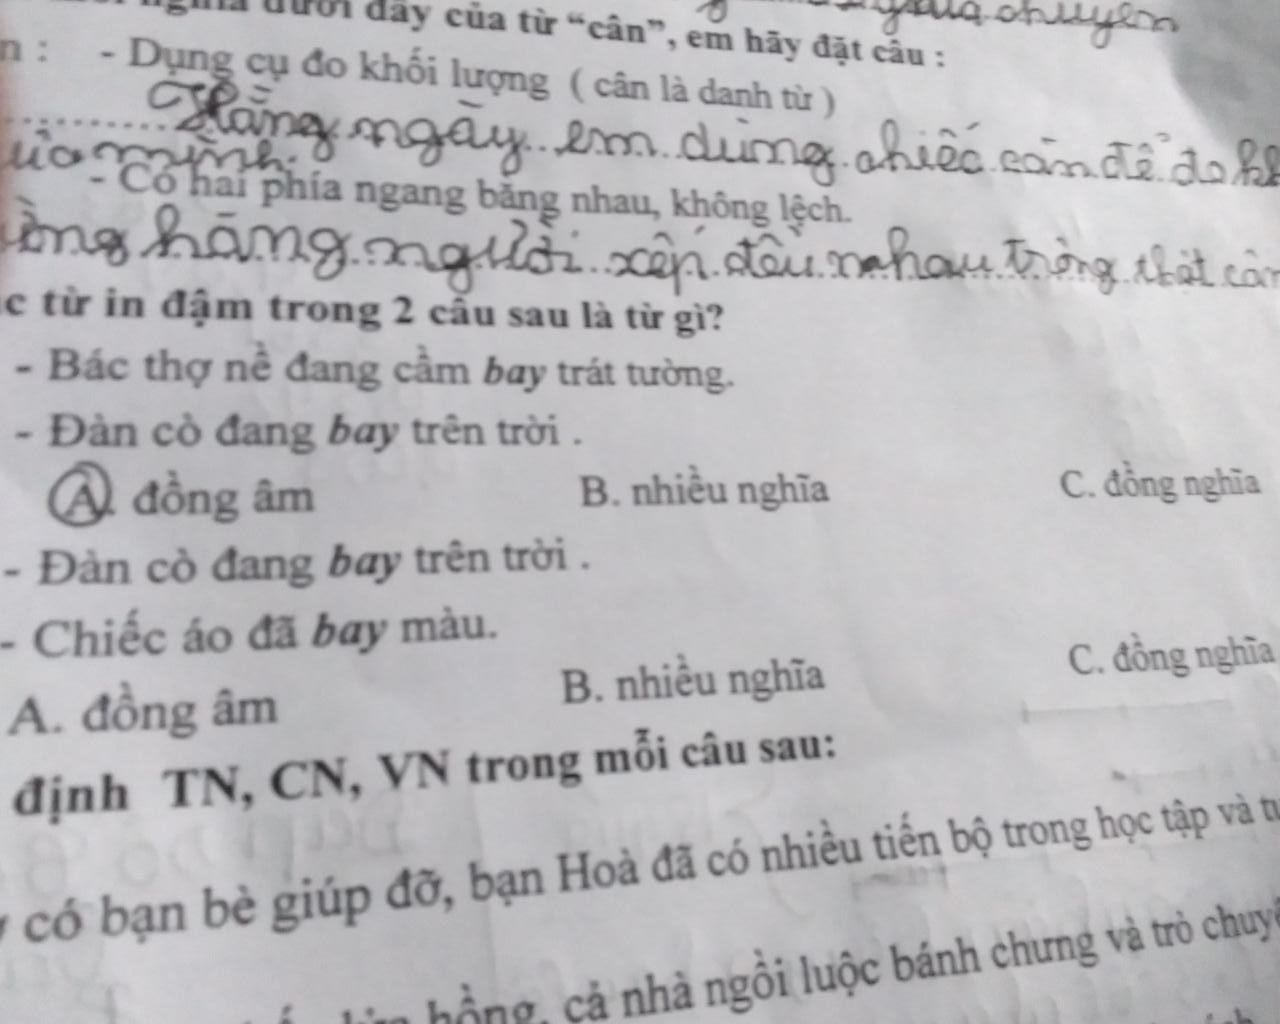 dưới đây của từ “cân”, em hãy đặt câu :
n : - Dụng cụ đo khối lượng ( cân là danh từ )
Hằng ngày em dùng chiếc cân để đo
mình.
- Có hai phía ngang bằng nhau, không lệch.
hãng người xếp đều nhau trông thật cân
c từ in đậm trong 2 câu sau là từ gì?
- Bác thợ nề đang cầm bay trát tường.
- Đàn cò đang bay trên trời .
A. đồng âm B. nhiều nghĩa C. đồng nghĩa
- Đàn cò đang bay trên trời .
- Chiếc áo đã bay màu.
A. đồng âm B. nhiều nghĩa C. đồng nghĩa
định TN, CN, VN trong mỗi câu sau:
có bạn bè giúp đỡ, bạn Hoà đã có nhiều tiến bộ trong học tập và
hồng, cả nhà ngồi luộc bánh chưng và trò